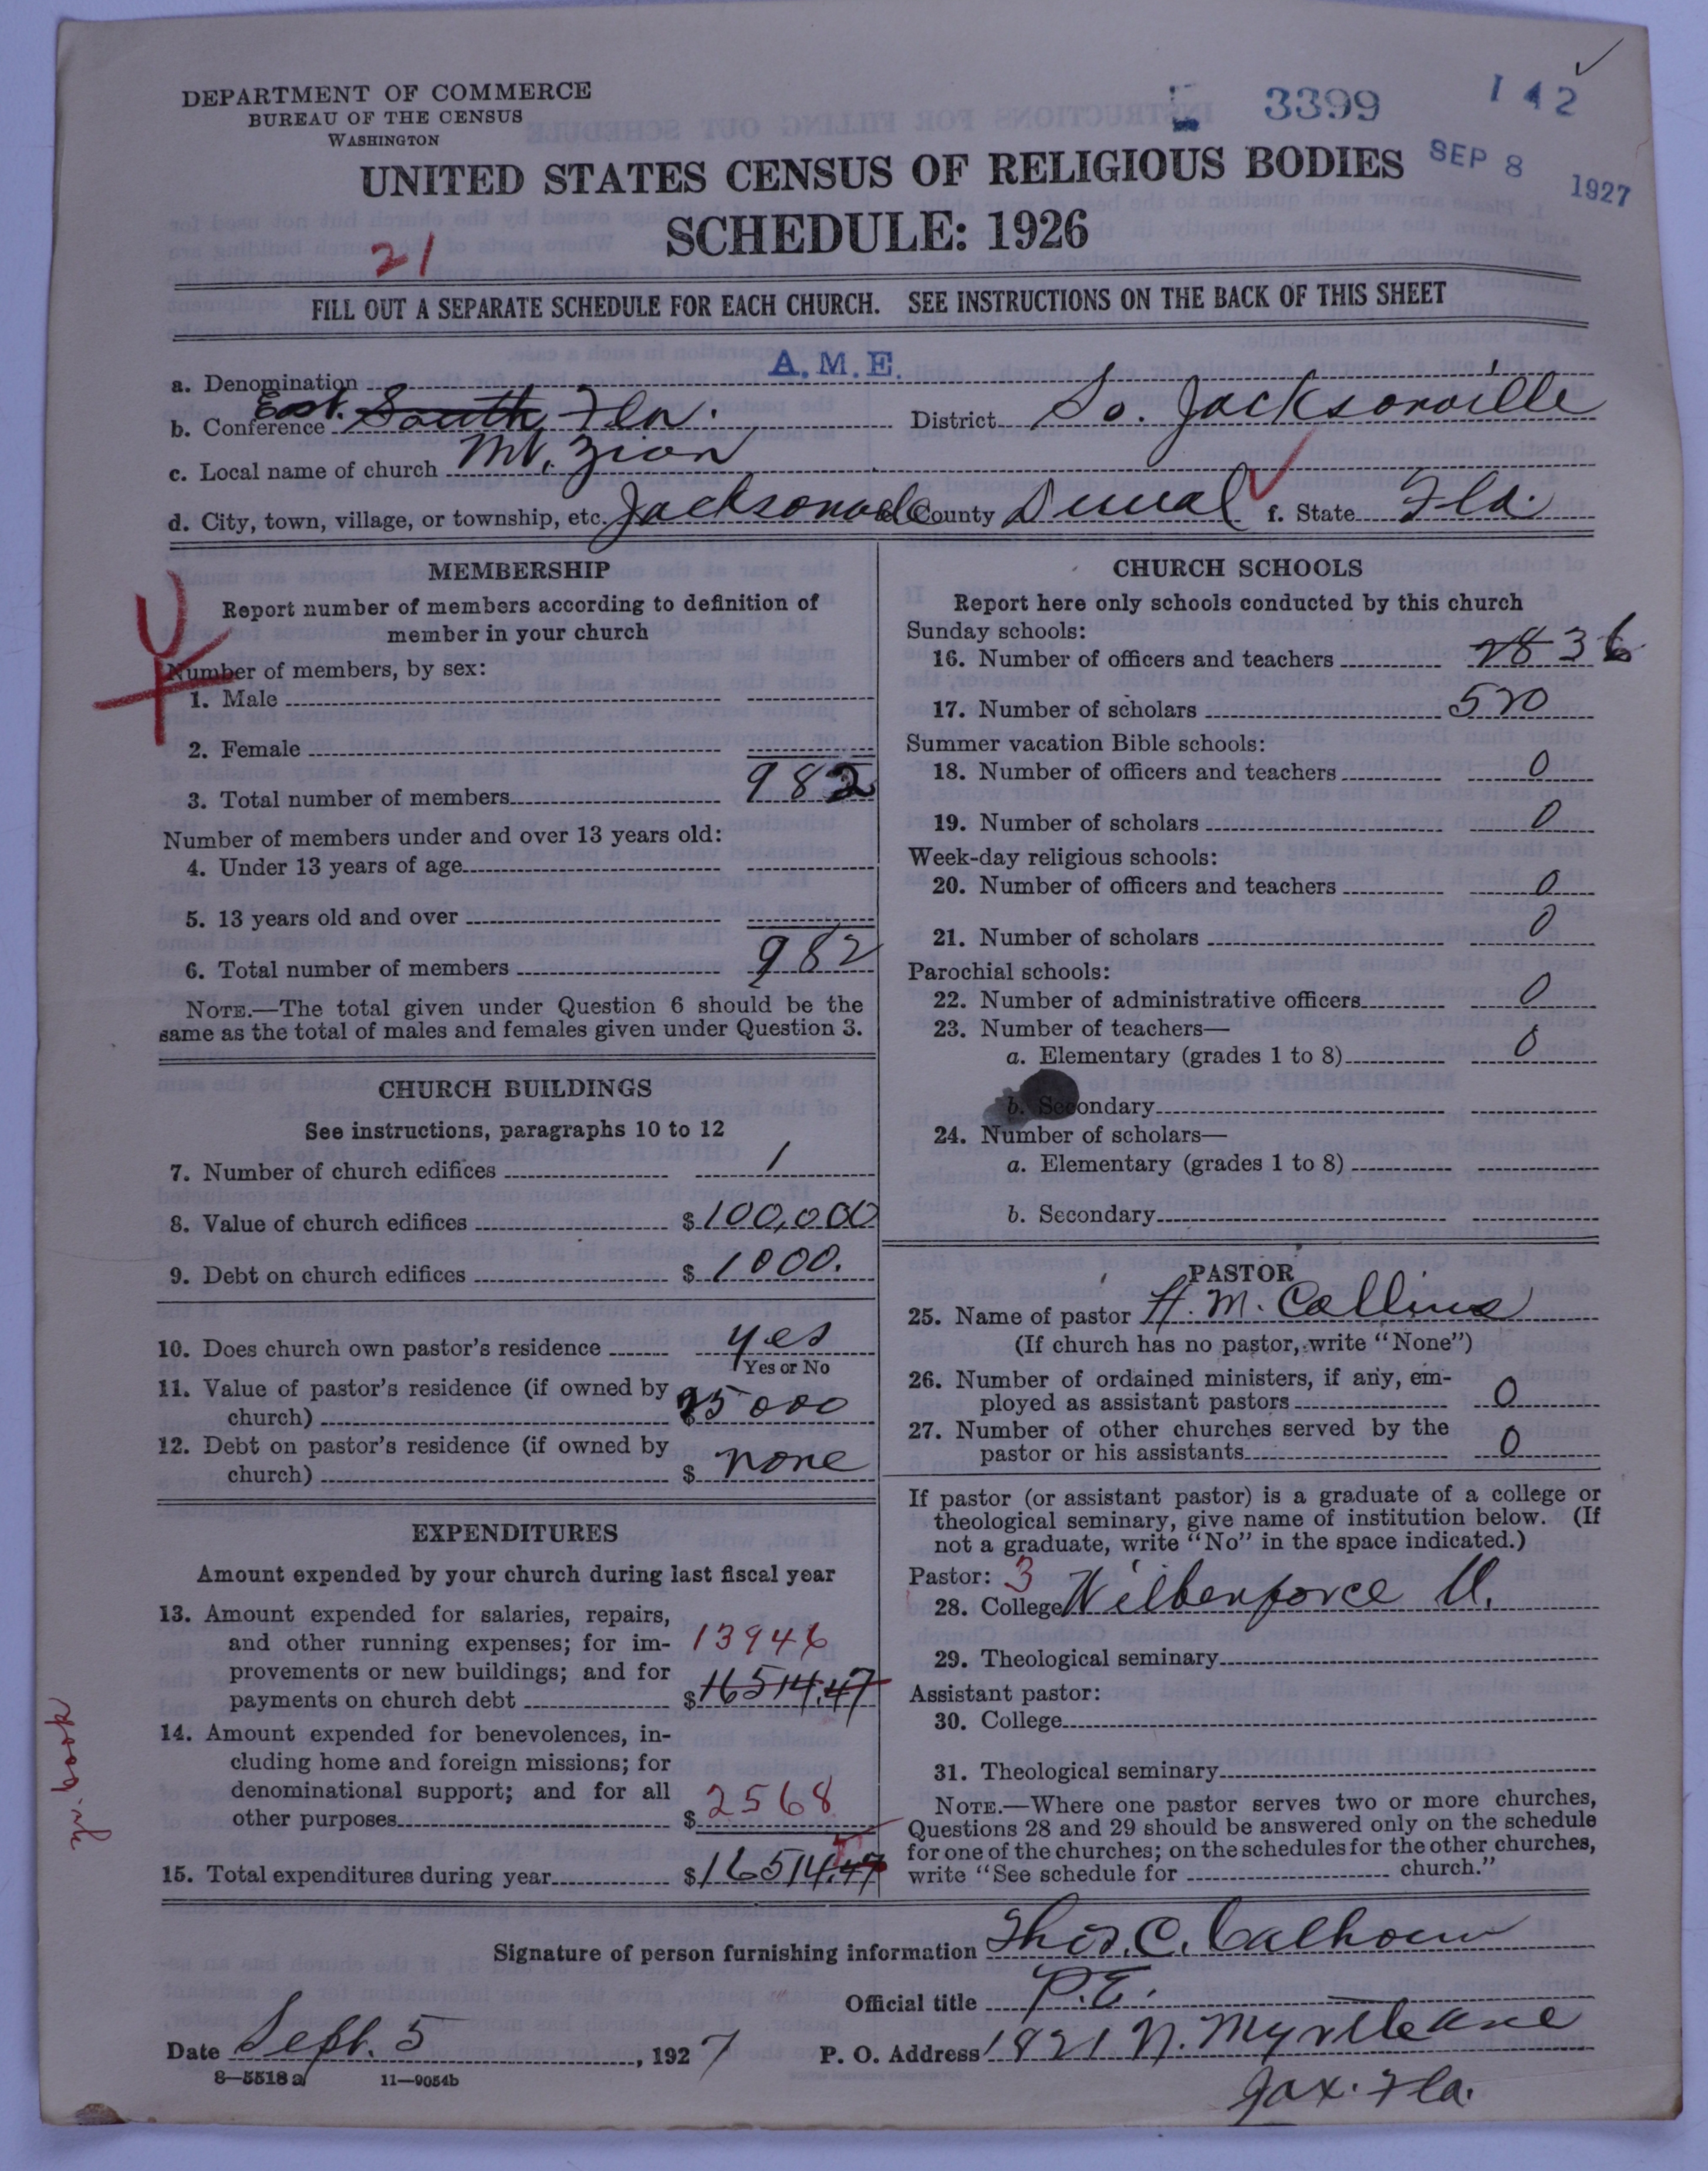 DEPARTMENT OF COMMERCE
BUREAU OF THE CENSUS
WASHINGTON
3399
142
SEP 8 1927
UNITED STATES CENSUS OF RELIGIOUS BODIES
SCHEDULE: 1926
21
FILL OUT A SEPARATE SCHEDULE FOR EACH CHURCH. SEE INSTRUCTIONS ON THE BACK OF THIS SHEET
a. Denomination A.M.E.
b. Conference East. South Fla. District So. Jacksonville
c. Local name of church Mt. Zion
d. City, town, village, or township, etc. Jacksonville County Duval f. State Fla.
MEMBERSHIP
Report number of members according to definition of
member in your church
Number of members, by sex:
1. Male
2. Female
3. Total number of members 982
Number of members under and over 13 years old:
4. Under 13 years of age
5. 13 years old and over
6. Total number of members 982
NOTE.—The total given under Question 6 should be the
same as the total of males and females given under Question 3.
CHURCH BUILDINGS
See instructions, paragraphs 10 to 12
7. Number of church edifices 1
8. Value of church edifices $100,000
9. Debt on church edifices $1000.
10. Does church own pastor's residence yes
Yes or No
11. Value of pastor's residence (if owned by
church) 25000
12. Debt on pastor's residence (if owned by
church) $ none
EXPENDITURES
Amount expended by your church during last fiscal year
13. Amount expended for salaries, repairs,
and other running expenses; for im- 13946
provements or new buildings; and for
payments on church debt $16514.47
14. Amount expended for benevolences, in-
cluding home and foreign missions; for
denominational support; and for all
other purposes $2568
15. Total expenditures during year $16514.47
yr. book
CHURCH SCHOOLS
Report here only schools conducted by this church
Sunday schools:
16. Number of officers and teachers 28 36
17. Number of scholars 520
Summer vacation Bible schools:
18. Number of officers and teachers 0
19. Number of scholars 0
Week-day religious schools:
20. Number of officers and teachers 0
21. Number of scholars 0
Parochial schools:
22. Number of administrative officers 0
23. Number of teachers—
a. Elementary (grades 1 to 8) 0
b. Secondary
24. Number of scholars—
a. Elementary (grades 1 to 8)
b. Secondary
PASTOR
25. Name of pastor H. M. Collins
(If church has no pastor, write "None")
26. Number of ordained ministers, if any, em-
ployed as assistant pastors 0
27. Number of other churches served by the
pastor or his assistants 0
If pastor (or assistant pastor) is a graduate of a college or
theological seminary, give name of institution below. (If
not a graduate, write "No" in the space indicated.)
Pastor: 3
28. College Wilberforce U.
29. Theological seminary
Assistant pastor:
30. College
31. Theological seminary
NOTE.—Where one pastor serves two or more churches,
Questions 28 and 29 should be answered only on the schedule
for one of the churches; on the schedules for the other churches,
write "See schedule for church."
Signature of person furnishing information Thos. C. Calhoun
Official title P.E.
Date Sept. 5, 1927 P. O. Address 1821 N. Myrtle Ave
8—5518a 11—9054b
Jax. Fla.